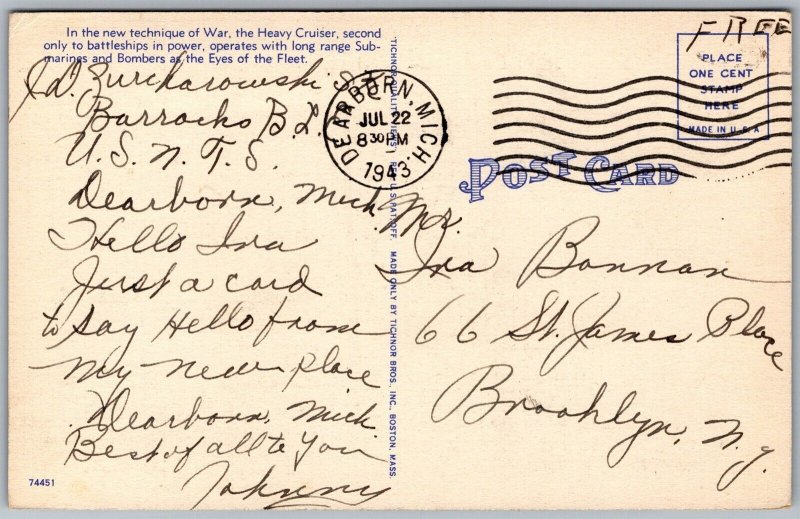 In the new technique of War, the Heavy Cruiser, second
only to battleships in power, operates with long range Sub-
marines and Bombers as the Eyes of the Fleet.
Barracks B.
U.S.N.T.S.
Dearborn, Mich.
Hello Ira
Just a card
to say Hello from
my new place
Dearborn, Mich
Best of all to You
Johnny
74451
MADE ONLY BY TICHNOR BROS., INC., BOSTON, MASS.
DEARBORN, MICH.
JUL 22
8 30 PM
1943
FREE
PLACE
ONE CENT
STAMP
HERE
MADE IN U.S.A
POST CARD
Mr.
Ira Bannan
66 St. James Place
Brooklyn, N.Y.